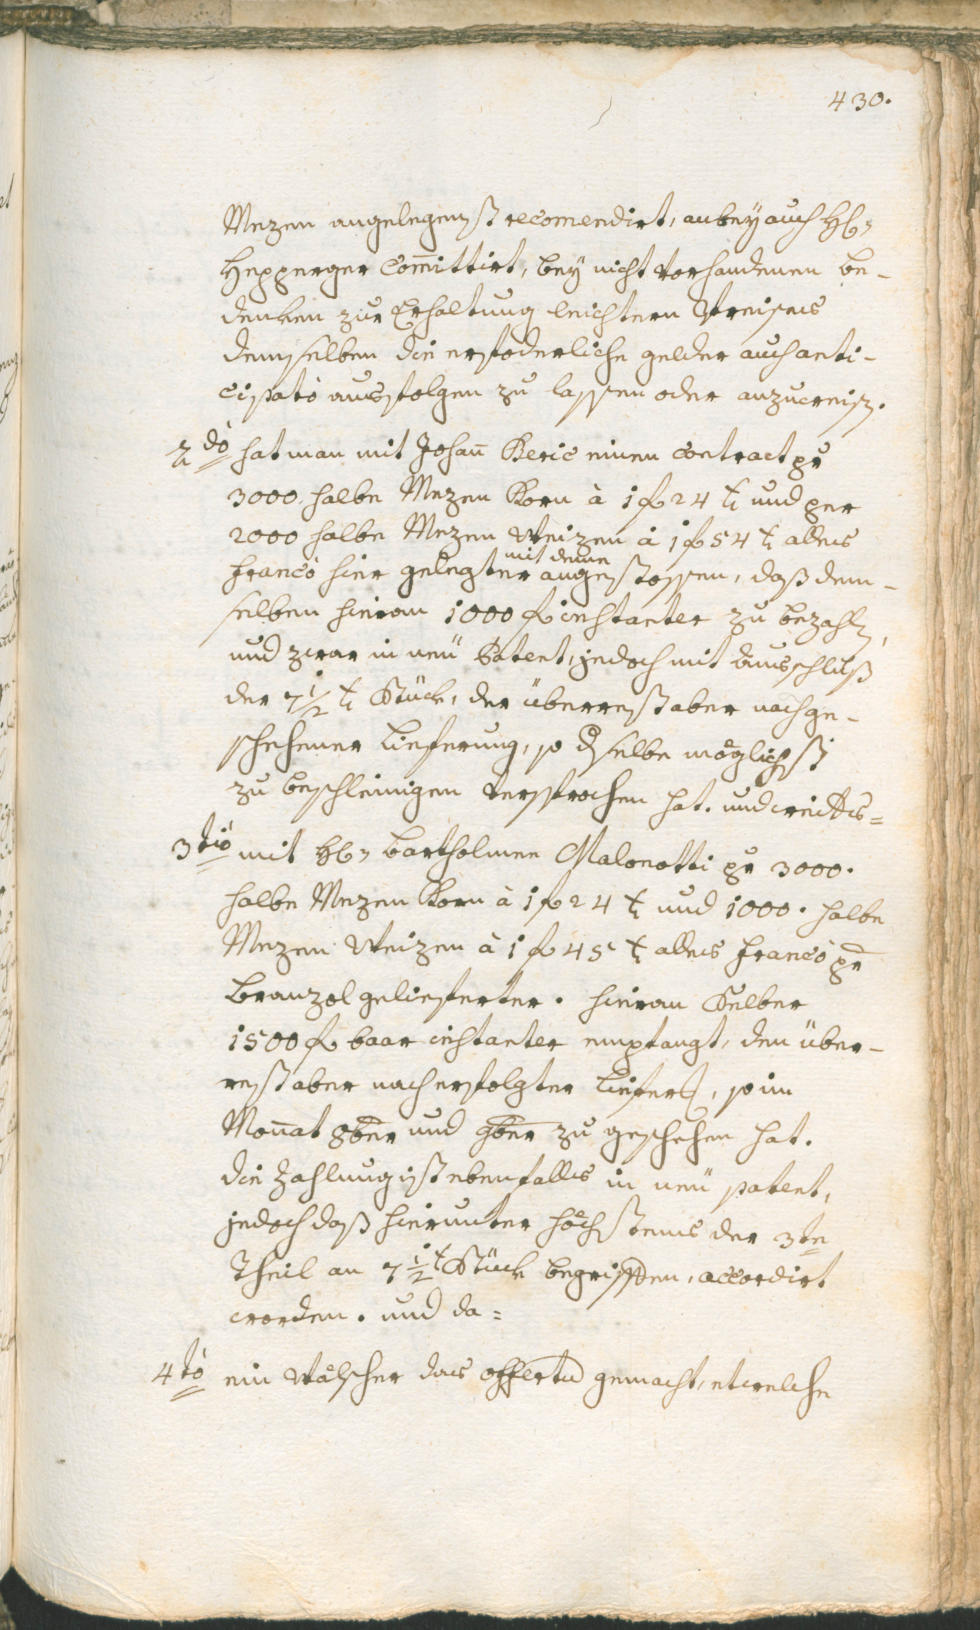 430.
Mezen angelegenst recomendirt, anbeÿ auch H:
Hepperger Com̄ittirt, beÿ nicht vorhandenen be-
denken zur Erhaltung leichtern Preises
demselben die erfoderliche gelder auch anti-
cipatò ausfolgen zu lassen oder anzuweis.
2dò hat man mit Johan̄ Beric einen contract pr
3000 halbe Mezen Korn à 1 f 24 x und per
2000 halbe Mezen Weizen à 1 f 54 x alles
francò hier gelegter mit deme angestossen, daß dem-
selben hieran 1000 f instanter zu bezahlen,
und zwar in neü Patent, jedoch mit Ausschluß
der 7 1/2 x Stück, der überrest aber nach ge-
schehener Lieferung, so dselbe möglichst
zu beschleinigen versprochen hat. und weiters=
3tiò mit H: Bartholmee Malonotti pr 3000.
halbe Mezen Korn à 1 f 24 x und 1000. halbe
Mezen Weizen à 1 f 45 x alles francò pr
Branzol gelieferter. hieran Selber
1500 f baar instanter empfangt, den über-
rest aber nach erfolgter Liefer., so im
Mon̄at 8ber und 9ber zu geschehen hat.
die Zahlung ist ebenfalls in neü patent,
jedoch daß hierunter höchstens der 3te
Theil an 7 1/2 x Stück begriffen, accordirt
worden. und da=
4tò ein Wälscher das offerto gemacht, etwelche